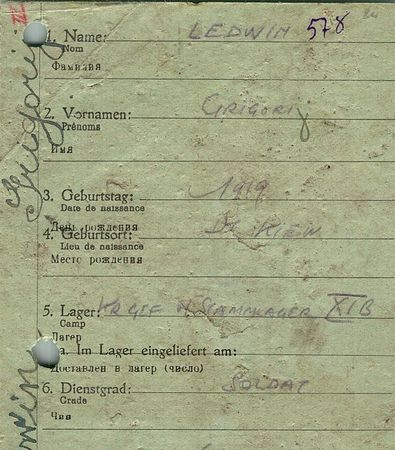 1. Name: LEDWIN 578
Nom
Фамилия
2. Vornamen: GRIGORIJ
Prénoms
Имя
3. Geburtstag: 1919
Date de naissance
День рождения
4. Geburtsort: KIEW
Lieu de naissance
Место рождения
5. Lager: KRGEF STAMMLAGER XIB
Camp
Лагер
a. Im Lager eingeliefert am:
Доставлен в лагер (число)
6. Dienstgrad: SOLDAT
Grade
Чин